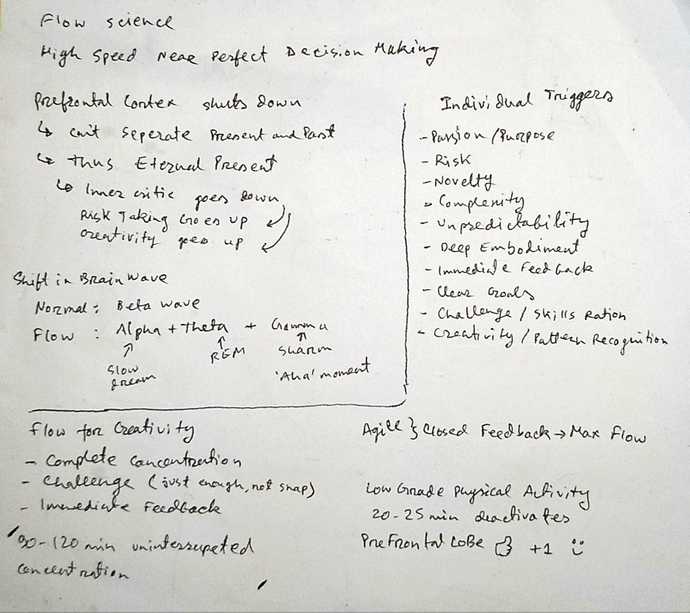 Flow science
High Speed Near Perfect Decision Making
Prefrontal Cortex shuts down
↳ can't seperate Present and Past
↳ Thus Eternal Present
↳ Inner critic goes down
Risk Taking Goes up
creativity goes up
Shift in Brain Wave
Normal : Beta wave
Flow : Alpha + Theta + Gamma
↑ ↑ ↑
Slow REM
Dream 'Aha' moment
Individual Triggers
- Passion / Purpose
- Risk
- Novelty
- Complexity
- Unpredictability
- Deep Embodiment
- Immediate Feedback
- Clear Goals
- Challenge / Skills Ration
- Creativity / Pattern Recognition
Flow for Creativity
- Complete Concentration
- Challenge (just enough, not snap)
- Immediate Feedback
90-120 min uninterrupted
concentration
Agile } Closed Feedback → Max Flow
Low Grade Physical Activity
20-25 min deactivates
PreFrontal Lobe 👍 +1 :)